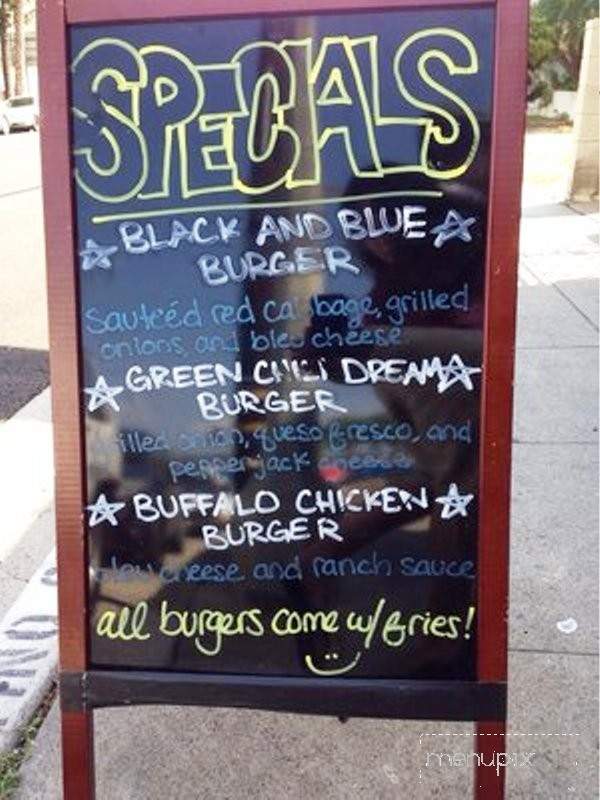 SPECIALS
BLACK AND BLUE
BURGER
Sautéed red cabbage, grilled
onions and bleu cheese.
GREEN CHILI DREAM
BURGER
grilled onion, queso fresco, and
pepper jack cheese
BUFFALO CHICKEN
BURGER
bleu cheese and ranch sauce
all burgers come w/ fries!
menupix